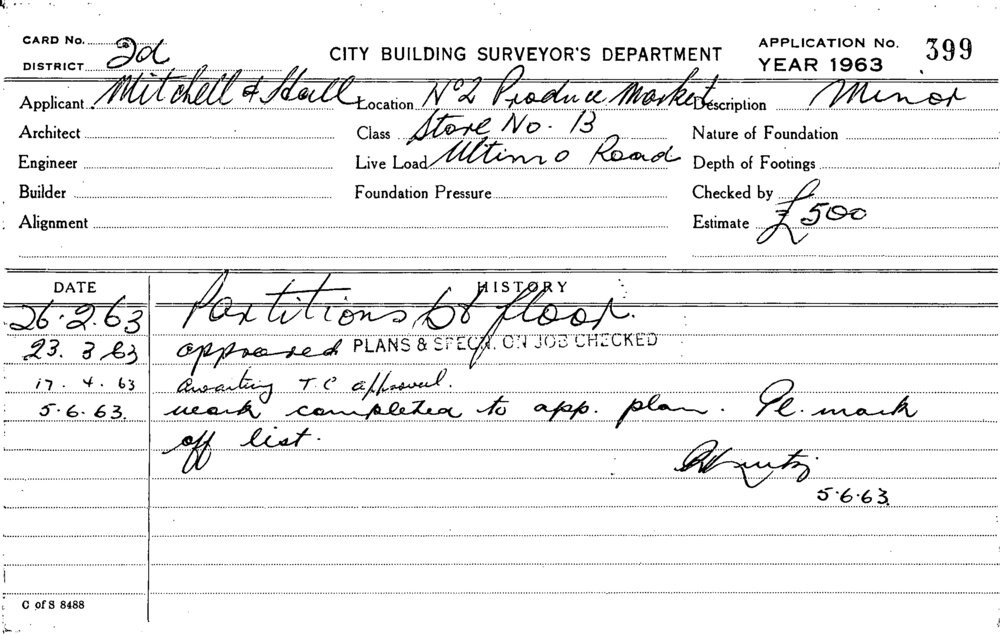 CARD No. 2d
DISTRICT
CITY BUILDING SURVEYOR'S DEPARTMENT
APPLICATION No. 399
YEAR 1963
Applicant Mitchell & Hall Location No 2 Produce Market Description Minor
Architect Class Store No. 13 Nature of Foundation
Engineer Live Load Ultimo Road Depth of Footings
Builder Foundation Pressure Checked by
Alignment Estimate £500
DATE HISTORY
26.2.63 Partitions floor.
23.3.63 approved PLANS & SPECN. ON JOB CHECKED
17.4.63 Awaiting T.C approval.
5.6.63. work completed to app. plan. Pl. mark
off list.
5.6.63.
C of S 8488